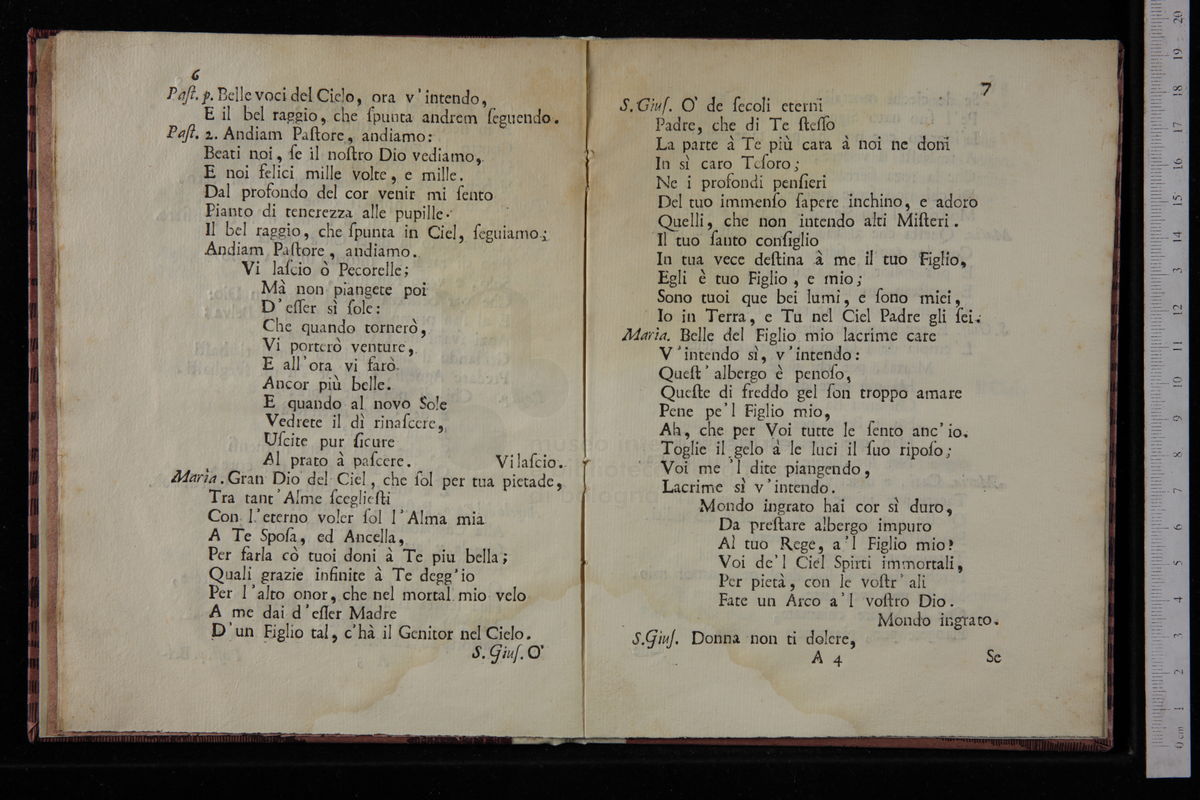 6
Paſt. p. Belle voci del Cielo, ora v'intendo,
E il bel raggio, che ſpunta andrem ſeguendo.
Paſt. 2. Andiam Paſtore, andiamo:
Beati noi, ſe il noſtro Dio vediamo,
E noi felici mille volte, e mille.
Dal profondo del cor venir mi ſento
Pianto di tenerezza alle pupille.
Il bel raggio, che ſpunta in Ciel, ſeguiamo;
Andiam Paſtore, andiamo.
Vi laſcio ò Pecorelle;
Mà non piangete poi
D'eſſer sì ſole:
Che quando tornerò,
Vi porterò venture,
E all'ora vi farò
Ancor più belle.
E quando al novo Sole
Vedrete il dì rinaſcere,
Uſcite pur ſicure
Al prato à paſcere. Vi laſcio.
Maria. Gran Dio del Ciel, che ſol per tua pietade,
Tra tant'Alme ſceglieſti
Con l'eterno voler ſol l'Alma mia
A Te Spoſa, ed Ancella,
Per farla cò tuoi doni à Te piu bella;
Quali grazie infinite à Te degg'io
Per l'alto onor, che nel mortal mio velo
A me dai d'eſſer Madre
D'un Figlio tal, c'hà il Genitor nel Cielo.
S. Giuſ. O'
7
S. Giuſ. O' de ſecoli eterni
Padre, che di Te ſteſſo
La parte à Te più cara à noi ne doni
In sì caro Teſoro;
Ne i profondi penſieri
Del tuo immenſo ſapere inchino, e adoro
Quelli, che non intendo alti Miſteri.
Il tuo ſanto conſiglio
In tua vece deſtina à me il tuo Figlio,
Egli è tuo Figlio, e mio;
Sono tuoi que bei lumi, e ſono miei,
Io in Terra, e Tu nel Ciel Padre gli ſei.
Maria. Belle del Figlio mio lacrime care
V'intendo sì, v'intendo:
Queſt'albergo è penoſo,
Queſte di freddo gel ſon troppo amare
Pene pe'l Figlio mio,
Ah, che per Voi tutte le ſento anc'io.
Toglie il gelo à le luci il ſuo ripoſo;
Voi me 'l dite piangendo,
Lacrime sì v'intendo.
Mondo ingrato hai cor sì duro,
Da preſtare albergo impuro
Al tuo Rege, a'l Figlio mio?
Voi de'l Ciel Spirti immortali,
Per pietà, con le voſtr'ali
Fate un Arco a'l voſtro Dio.
Mondo ingrato.
S. Giuſ. Donna non ti dolere,
A 4 Se